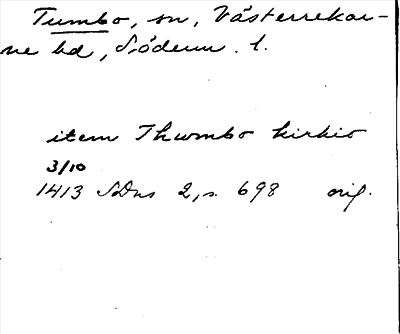 Tumbo, sn, Västerrekar-
ne hd, Söderm. l.
item Thumbo kirkio
3/10
1413 SDns 2, s. 698 orig.